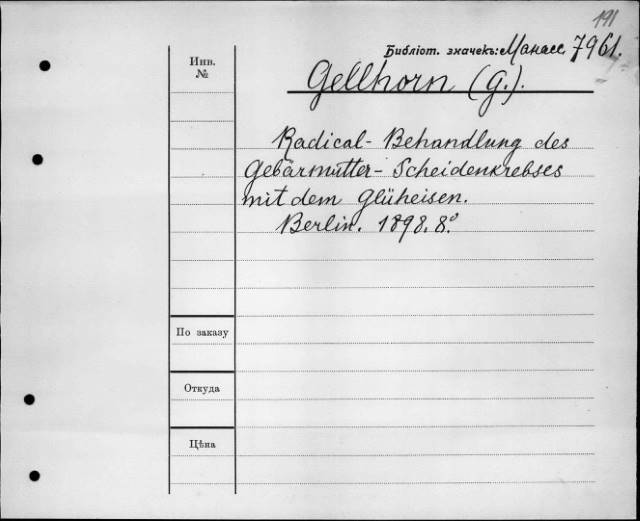 191
Библіот. значекъ: Манасс. 7961.
Инв.
№
Gellhorn (G.).
Radical-Behandlung des
Gebärmutter-Scheidenkrebses
mit dem Glüheisen.
Berlin. 1898. 8°.
По заказу
Откуда
Цѣна